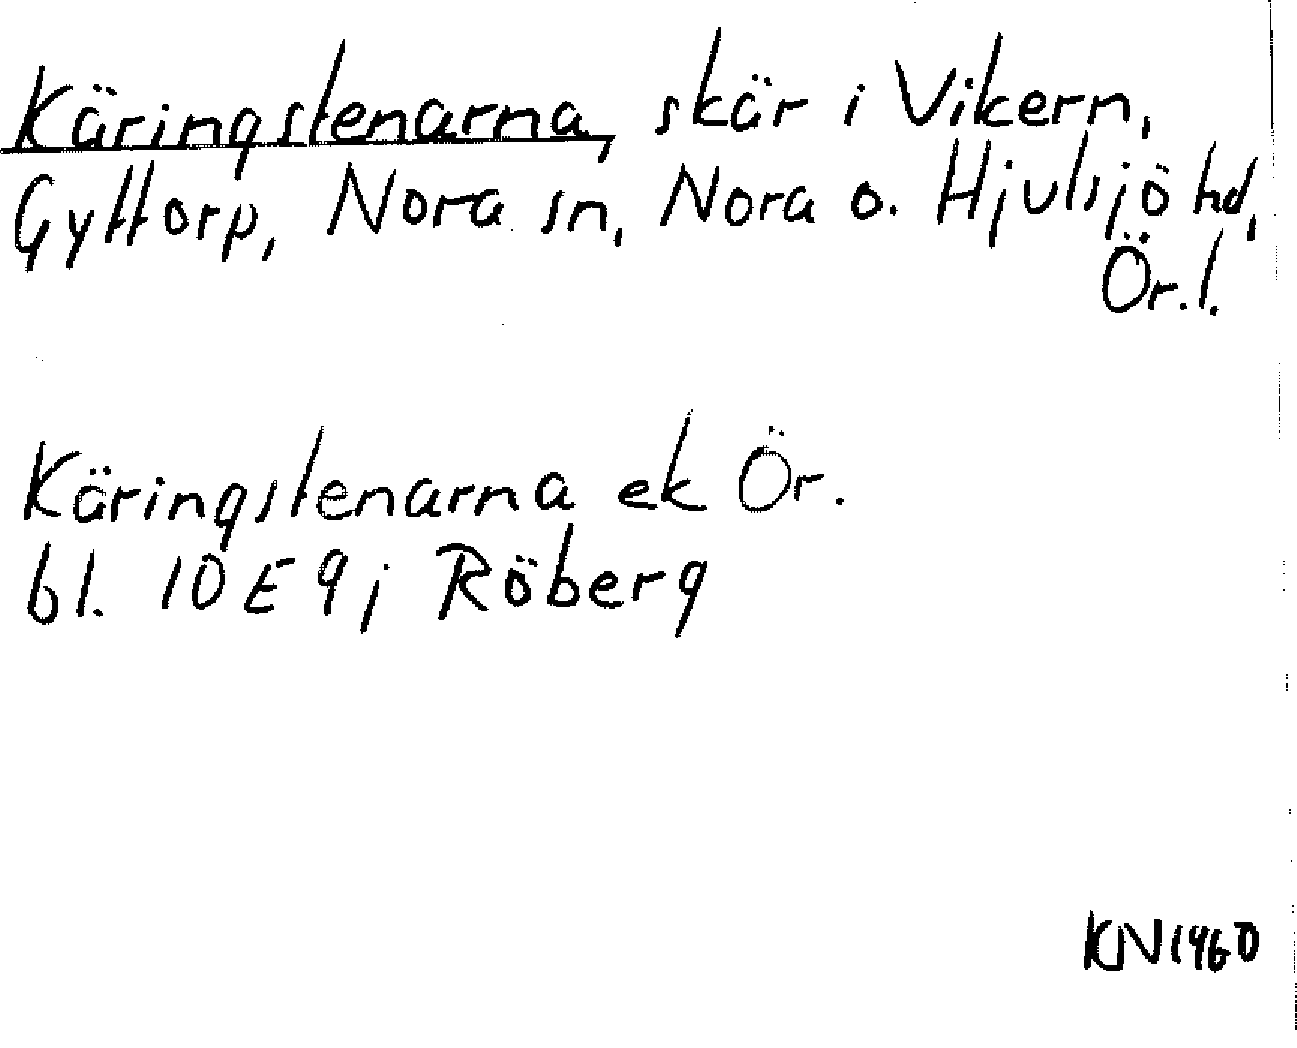 Käringstenarna, skär i Vikern,
Gyttorp, Nora sn, Nora o. Hjulsjö hd,
Ör.l.
Käringstenarna ek Ör.
bl. 10E 9j Röberg
KN1960